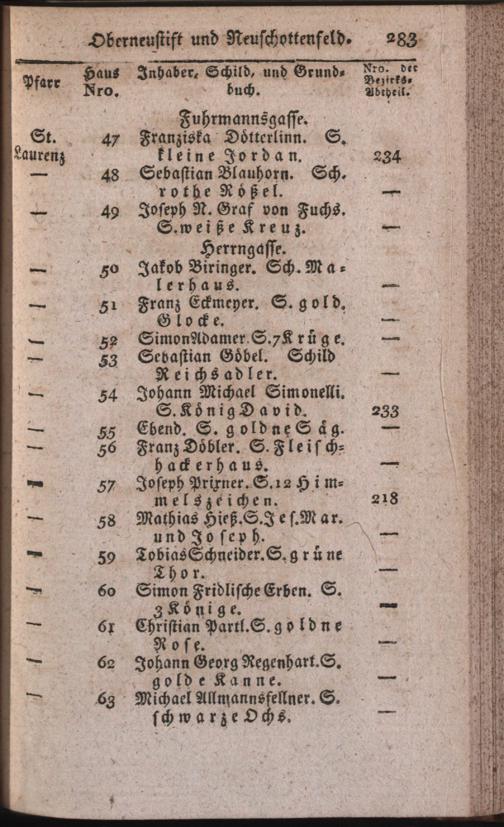 Oberneustift und Neuschottenfeld. 283
Pfarr Haus Nro. Inhaber, Schild, und Grund= buch. Nro. der Bezirks= Abtheil.
Fuhrmannsgasse.
St. 47 Franziska Dötterlinn. S.
Laurenz kleine Jordan. 234
— 48 Sebastian Blauhorn. Sch.
rothe Rößel. —
— 49 Joseph N. Graf von Fuchs.
S. weiße Kreuz. —
Herrngasse.
— 50 Jakob Biringer. Sch. Ma=
lerhaus. —
— 51 Franz Eckmeyer. S. gold.
Glocke. —
— 52 Simon Adamer. S. 7 Krüge. —
— 53 Sebastian Göbel. Schild
Reichsadler. —
— 54 Johann Michael Simonelli.
S. König David. 233
— 55 Ebend. S. goldne Säg. —
— 56 Franz Döbler. S. Fleisch=
hackerhaus. —
— 57 Joseph Prixner. S. 12 Him=
melszeichen. 218
— 58 Mathias Hieß. S. Jes. Mar.
und Joseph. —
— 59 Tobias Schneider. S. grüne
Thor. —
— 60 Simon Fridlische Erben. S.
3 Könige. —
— 61 Christian Partl. S. goldne
Rose. —
— 62 Johann Georg Regenhart. S.
golde Kanne. —
— 63 Michael Allmannsfellner. S.
schwarze Ochs. —